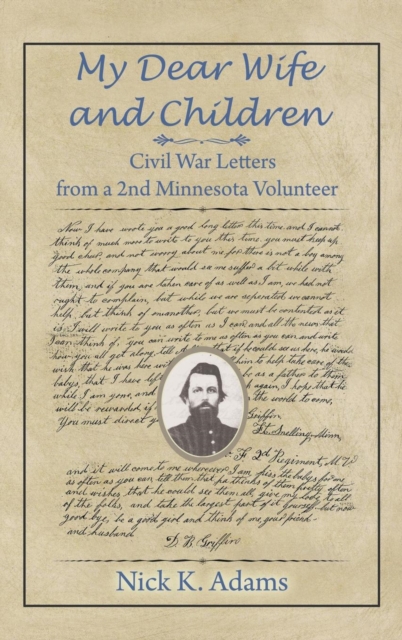 My Dear Wife
and Children
Civil War Letters
from a 2nd Minnesota Volunteer
Now I have wrote you a good long letter this time, and I cannot
think of much more to write to you this time. you must keep up
good cheer, and not worry about me for there is not a boy among
the whole company that would see me suffer a bit while with
them, and if you are taken care of as well as I am, we had not
ought to complain, but while we are seperated we cannot
help but think of oneanother, but we must be contented as it
is. I will write to you as often as I can and all the news that
I can think of. you can write to me as often as you can, and write
how you all get along tell A that if he could see us here, he would
wish that he was here wit him to help take care of the
babys, that I have lef be as a father to them
while I am gone, and again, I hope that he
will be rewarded if the world to come,
You must direct y Griffin
Ft. Snelling, Minn,
F. 2d Regiment, M. V.
and it will come to me wherever I am kiss the babys for me
as often as you can tell them that pa thinks of them pretty often
and wishes that he could see them all, give my love to all
of the folks, and take the largest part of it yourself but now
good bye, be a good girl and think of me your friend
and husband
D. B. Griffin
Nick K. Adams